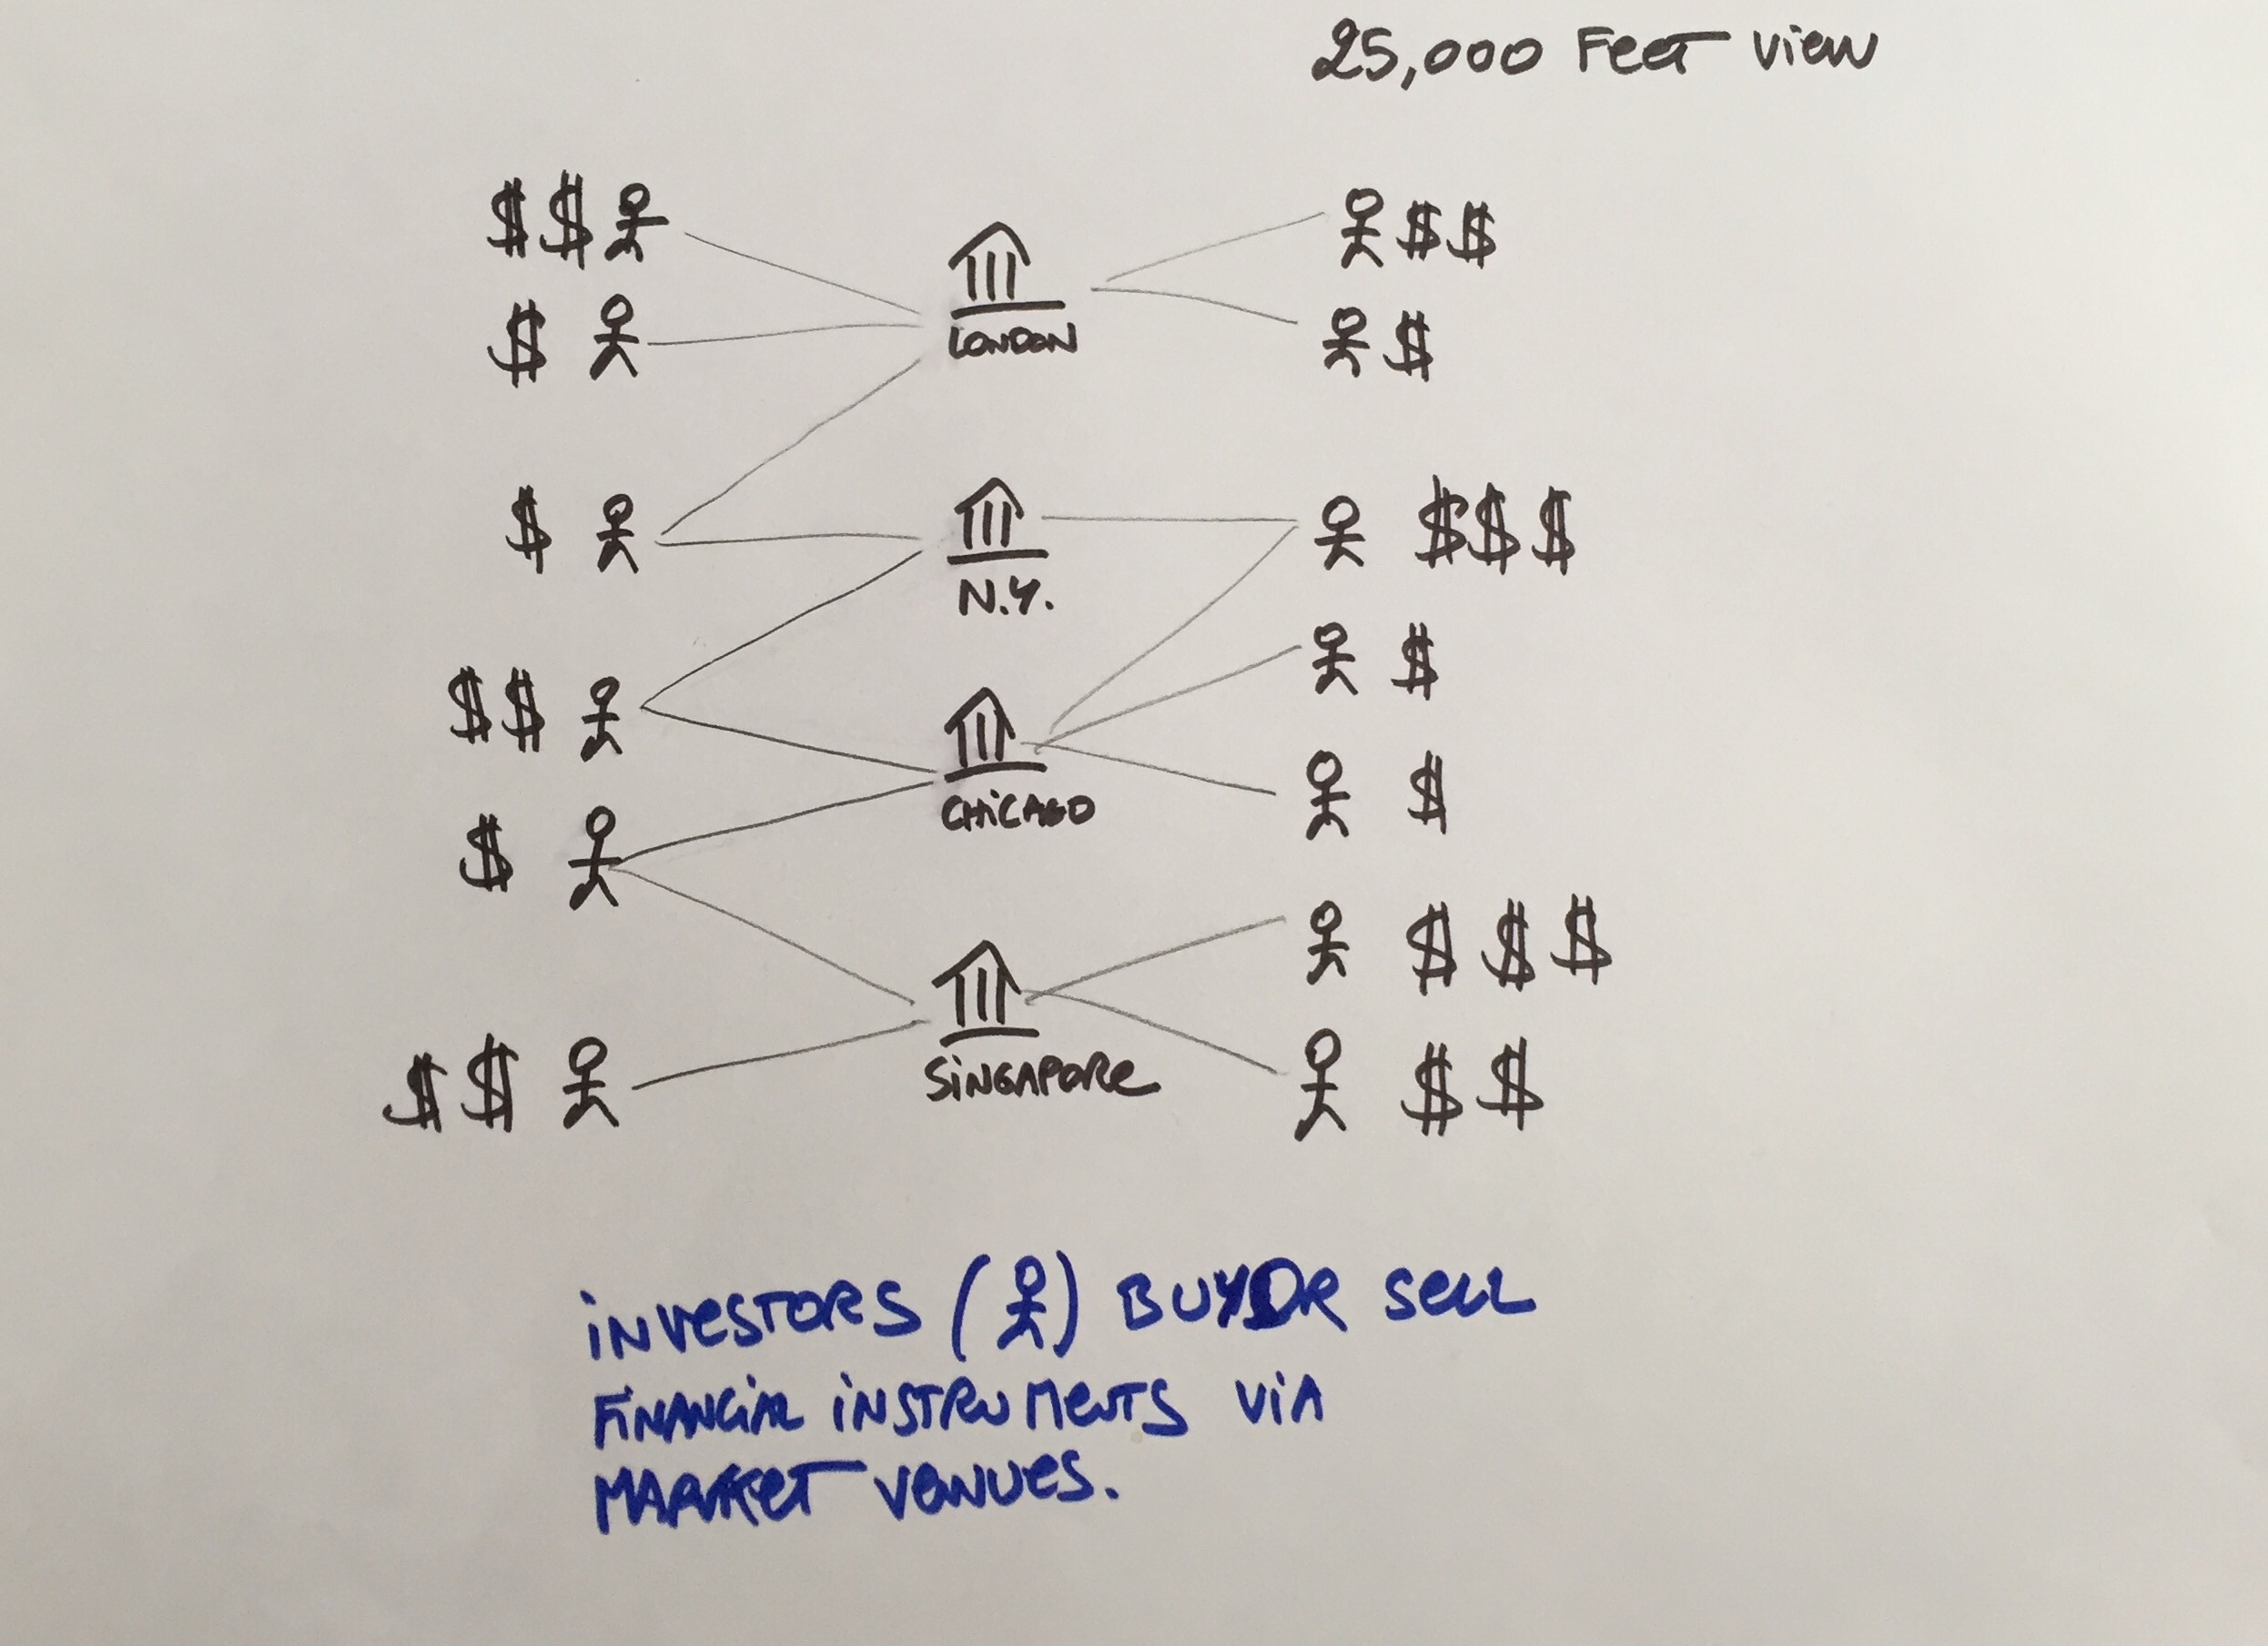 25,000 Feet View
$$ $$
$ $
LONDON
$ $$$
N.Y.
$
$$
$
CHiCAGO
$
$$$
SiNGAPORe
$$ $$
iNVeSTORS ( ) BUY OR SeLL
FiNANCiAL iNSTRUMeNTS ViA
MARKeT VeNUeS.